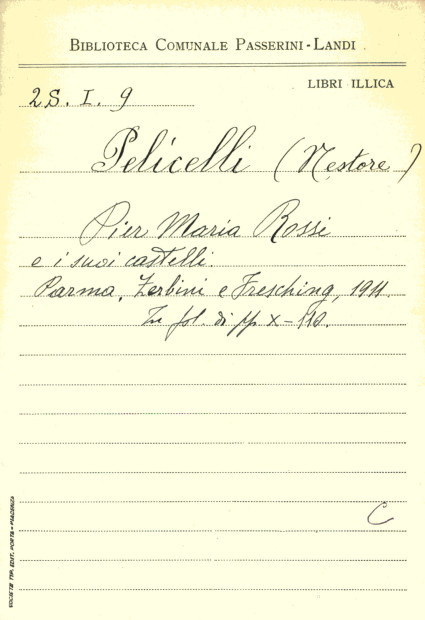 BIBLIOTECA COMUNALE PASSERINI-LANDI
LIBRI ILLICA
2S. I. 9
Pelicelli (Nestore)
Pier Maria Rossi
e i suoi castelli.
Parma, Zerbini e Fresching, 1911.
In fol. di pp X-110.
C
SOCIETÀ TIP. EDIT. PORTA - PIACENZA